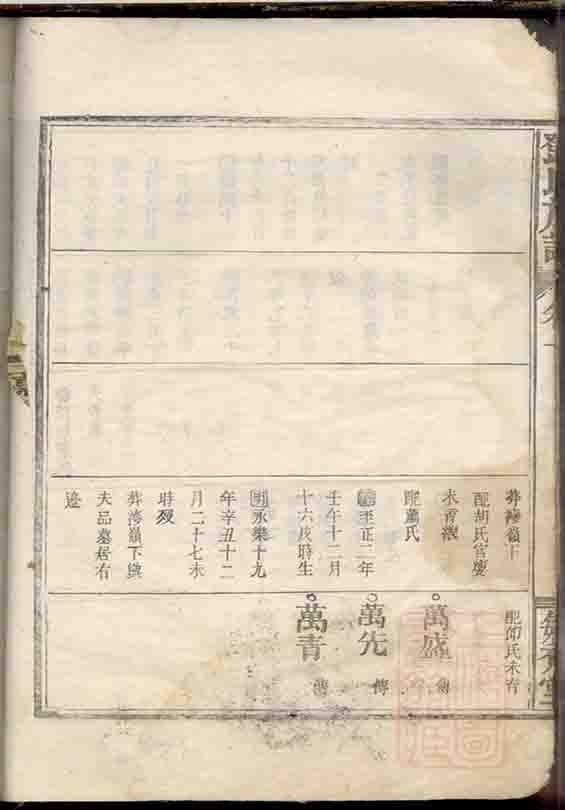 氏族譜
葬灣嶺下
配胡氏官
未育繼
配蕭氏
至正二年
壬午十二月
十六戌時生
明永樂十九
年辛丑十二
月二十七未
時歿
葬灣嶺下與
夫品墓居右
邊
配邱氏未育
萬盛
萬先 傳
萬青 傳